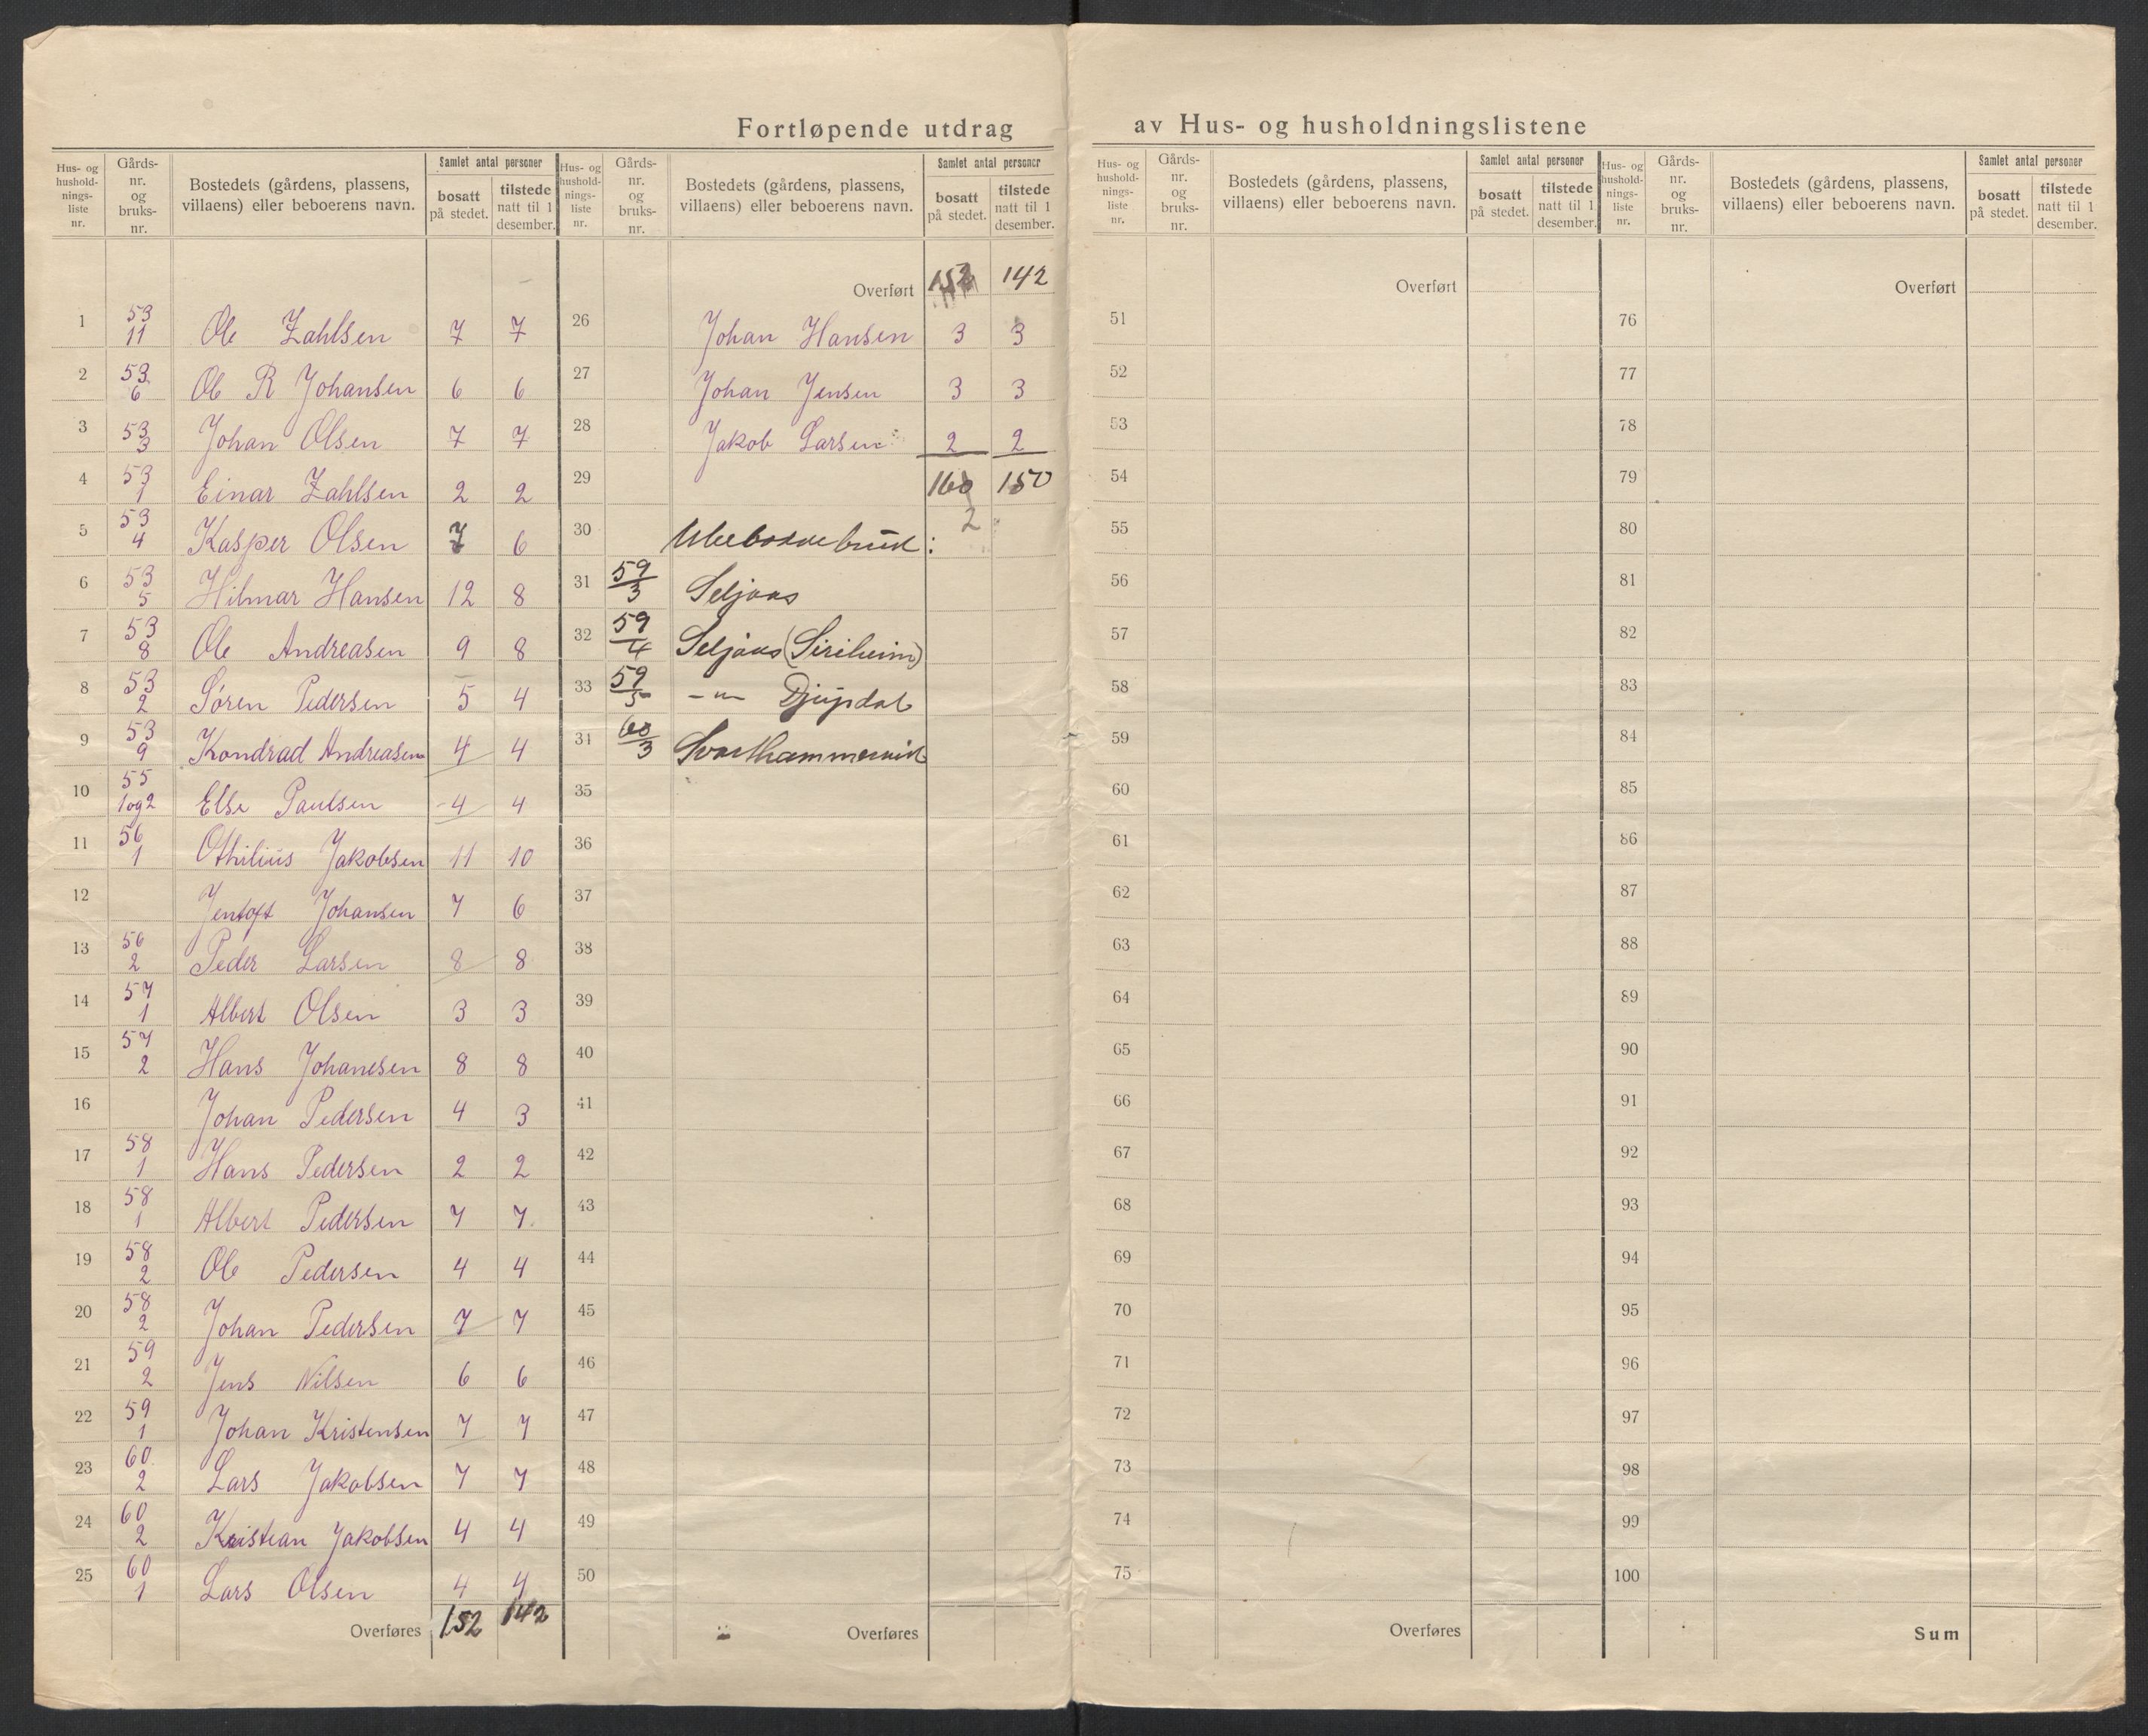 Fortløpende utdrag av Hus- og husholdningslistene
Hus- og husholdningsliste nr. | Gårds-nr. og bruks-nr. | Bostedets (gårdens, plassens, villaens) eller beboerens navn. | Samlet antal personer | bosatt på stedet. | tilstede natt til 1 desember.
1 53 11 Ole Zahlsen 7 7
2 53 6 Ole R Johansen 6 6
3 53 3 Johan Olsen 7 7
4 53 1 Einar Zahlsen 2 2
5 53 4 Kasper Olsen 7 6
6 53 5 Hilmar Hansen 12 8
7 53 8 Ole Andreasen 9 8
8 53 2 Søren Pedersen 5 4
9 53 9 Kondrad Andreasen 4 4
10 55 1og2 Else Paulsen 4 4
11 56 1 Othilius Jakobsen 11 10
12 Jentoft Johansen 7 6
13 56 2 Peder Larsen 8 8
14 57 1 Albert Olsen 3 3
15 57 2 Hans Johansen 8 8
16 Johan Pedersen 4 3
17 58 1 Hans Pedersen 2 2
18 58 1 Albert Pedersen 7 7
19 58 2 Ole Pedersen 4 4
20 58 2 Johan Pedersen 7 7
21 59 2 Jens Nilsen 6 6
22 59 1 Johan Kristensen 7 7
23 60 2 Lars Jakobsen 7 7
24 60 2 Kristian Jakobsen 4 4
25 60 1 Lars Olsen 4 4
Overføres 152 142
Hus- og husholdningsliste nr. | Gårds-nr. og bruks-nr. | Bostedets (gårdens, plassens, villaens) eller beboerens navn. | Samlet antal personer | bosatt på stedet. | tilstede natt til 1 desember.
Overført 152 142
26 Johan Hansen 3 3
27 Johan Jensen 3 3
28 Jakob Larsen 2 2
29 160 150
2
30 Ubebodde bruk:
31 59/3 Seljaas
32 59/4 Seljaas (Siriheim)
33 59/5 -"- Djupdal
34 60/3 Svarthammervik
35
36
37
38
39
40
41
42
43
44
45
46
47
48
49
50
Overføres
Hus- og husholdningsliste nr. | Gårds-nr. og bruks-nr. | Bostedets (gårdens, plassens, villaens) eller beboerens navn. | Samlet antal personer | bosatt på stedet. | tilstede natt til 1 desember.
Overført
51
52
53
54
55
56
57
58
59
60
61
62
63
64
65
66
67
68
69
70
71
72
73
74
75
Overføres
Hus- og husholdningsliste nr. | Gårds-nr. og bruks-nr. | Bostedets (gårdens, plassens, villaens) eller beboerens navn. | Samlet antal personer | bosatt på stedet. | tilstede natt til 1 desember.
Overført
76
77
78
79
80
81
82
83
84
85
86
87
88
89
90
91
92
93
94
95
96
97
98
99
100
Sum